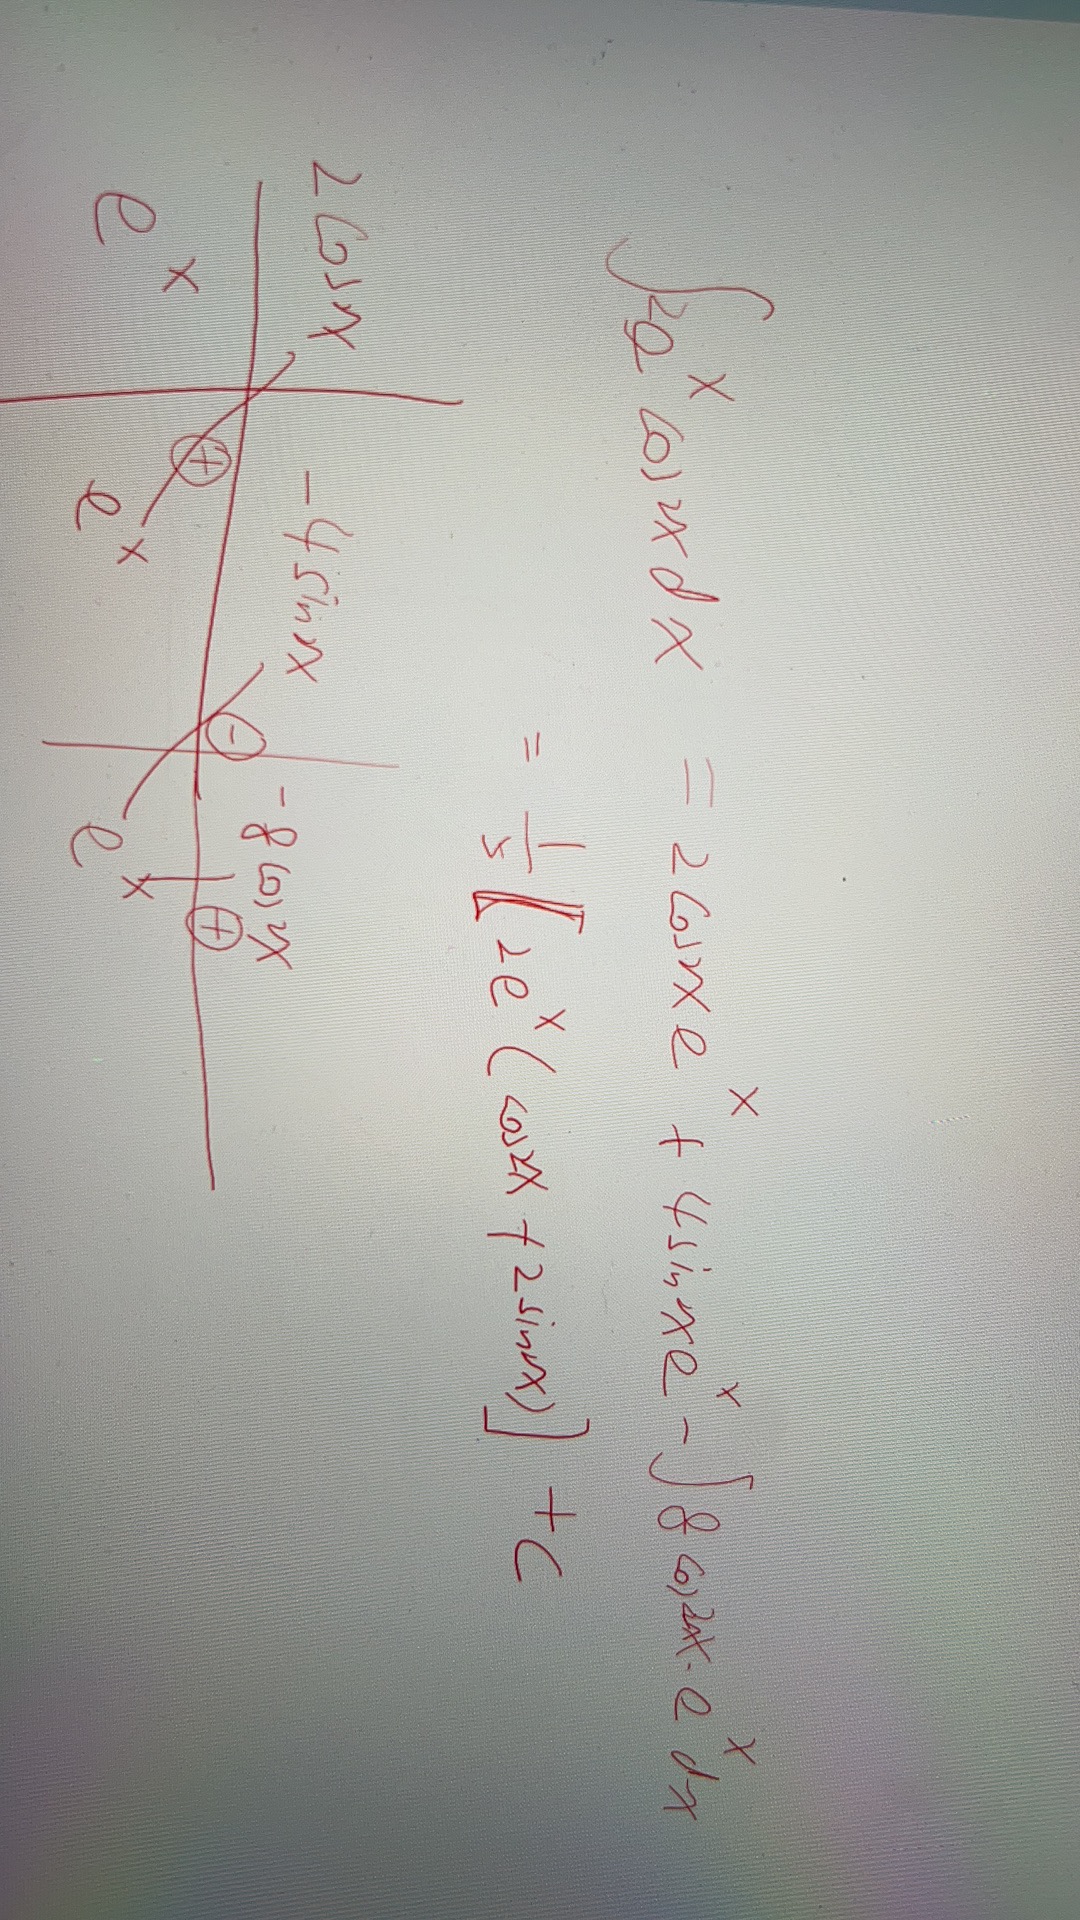 ∫2e^x cos2x dx = 2cos2x e^x + 4sin2x e^x - ∫8cos2x·e^x dx
= 1/5 [2e^x (cos2x + 2sin2x)] + C
2cos2x -4sin2x -8cos2x
⊕ ⊖ ⊕
e^x e^x e^x